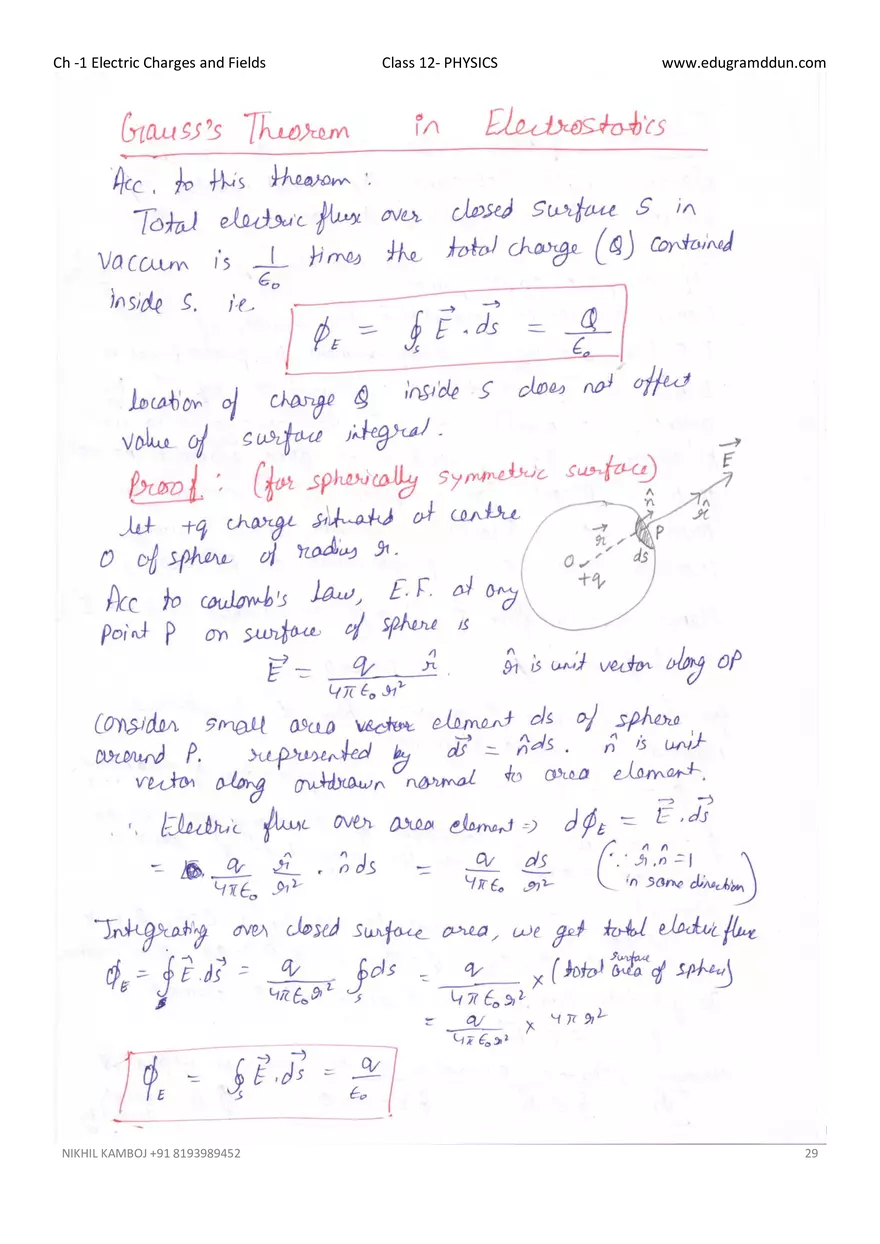 Ch -1 Electric Charges and Fields Class 12- PHYSICS www.edugramddun.com
Gauss's Theorem in Electrostatics
Acc. to this thearom :
Total electric flux over closed surface S in
Vaccum is 1/ϵ₀ times the total charge (Q) contained
inside S. i.e.
ϕ_E = ∮_S E⃗ . ds⃗ = Q/ϵ₀
location of charge Q inside S does not affect
value of surface integral.
Proof : (for spherically symmetric surface)
let +q charge situated at centre
O of sphere of radius r.
Acc to coulomb's Law, E.F. at any
point P on surface of sphere is
E⃗ n̂ r̂ P ds r⃗ O +q
E⃗ = q/4πϵ₀r² r̂. r̂ is unit vector along OP
Consider small area vector element ds of sphere
around P. represented by ds⃗ = n̂ds. n̂ is unit
vector along outdrawn normal to area element.
∴ Electric flux over area element => dϕ_E = E⃗.ds⃗
= q/4πϵ₀ r̂/r² . n̂ds = q/4πϵ₀ ds/r² (∵ r̂.n̂ =1 in same direction)
Integrating over closed surface area, we get total electric flux
ϕ_E = ∮_S E⃗.ds⃗ = q/4πϵ₀r² ∮_S ds = q/4πϵ₀r² × (total surface area of sphere)
= q/4πϵ₀r² × 4πr²
ϕ_E = ∮_S E⃗.ds⃗ = q/ϵ₀
NIKHIL KAMBOJ +91 8193989452 29